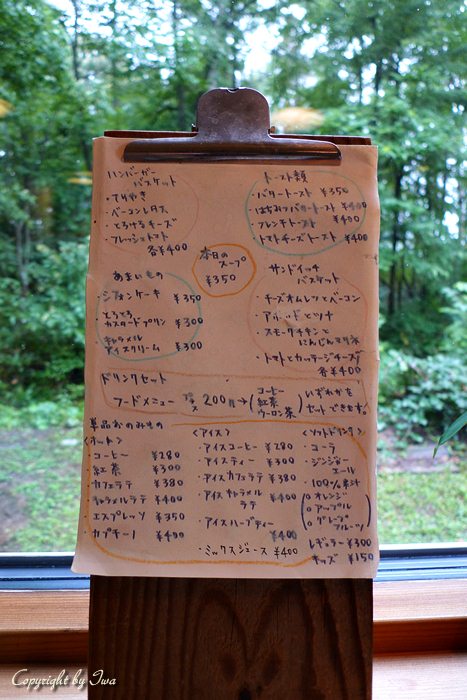 ハンバーガー
バスケット
・てりやき
・ベーコンレタス
・とろけるチーズ
・フレッシュトマト
各¥400
トースト類
・バタートースト ¥350
・はちみつバタートースト ¥400
・フレンチトースト ¥400
・トマトチーズトースト ¥400
本日の
スープ
¥350
あまいもの
・シフォンケーキ ¥350
・とろとろ
カスタードプリン ¥300
・キャラメル
アイスクリーム ¥300
サンドイッチ
バスケット
・チーズオムレツとベーコン
・アボカドとツナ
・スモークチキンと
にんじんマリネ
・トマトとカッテージチーズ
各¥400
ドリンクセット
フードメニュー プラス 200円→(コーヒー
紅茶
ウーロン茶)いずれかを
セットできます。
単品おのみもの
〈ホット〉
コーヒー ¥280
紅茶 ¥300
カフェラテ ¥380
キャラメルラテ ¥400
エスプレッソ ¥350
カプチーノ ¥400
〈アイス〉
・アイスコーヒー ¥280
・アイスティー ¥300
・アイスカフェラテ ¥380
・アイスキャラメル
ラテ ¥400
・アイスハーブティー
¥400
・ミックスジュース ¥400
〈ソフトドリンク〉
・コーラ
・ジンジャー
エール
・100%果汁
オレンジ
アップル
グレープ
フルーツ
レギュラー ¥300
キッズ ¥150
Copyright by Iwa